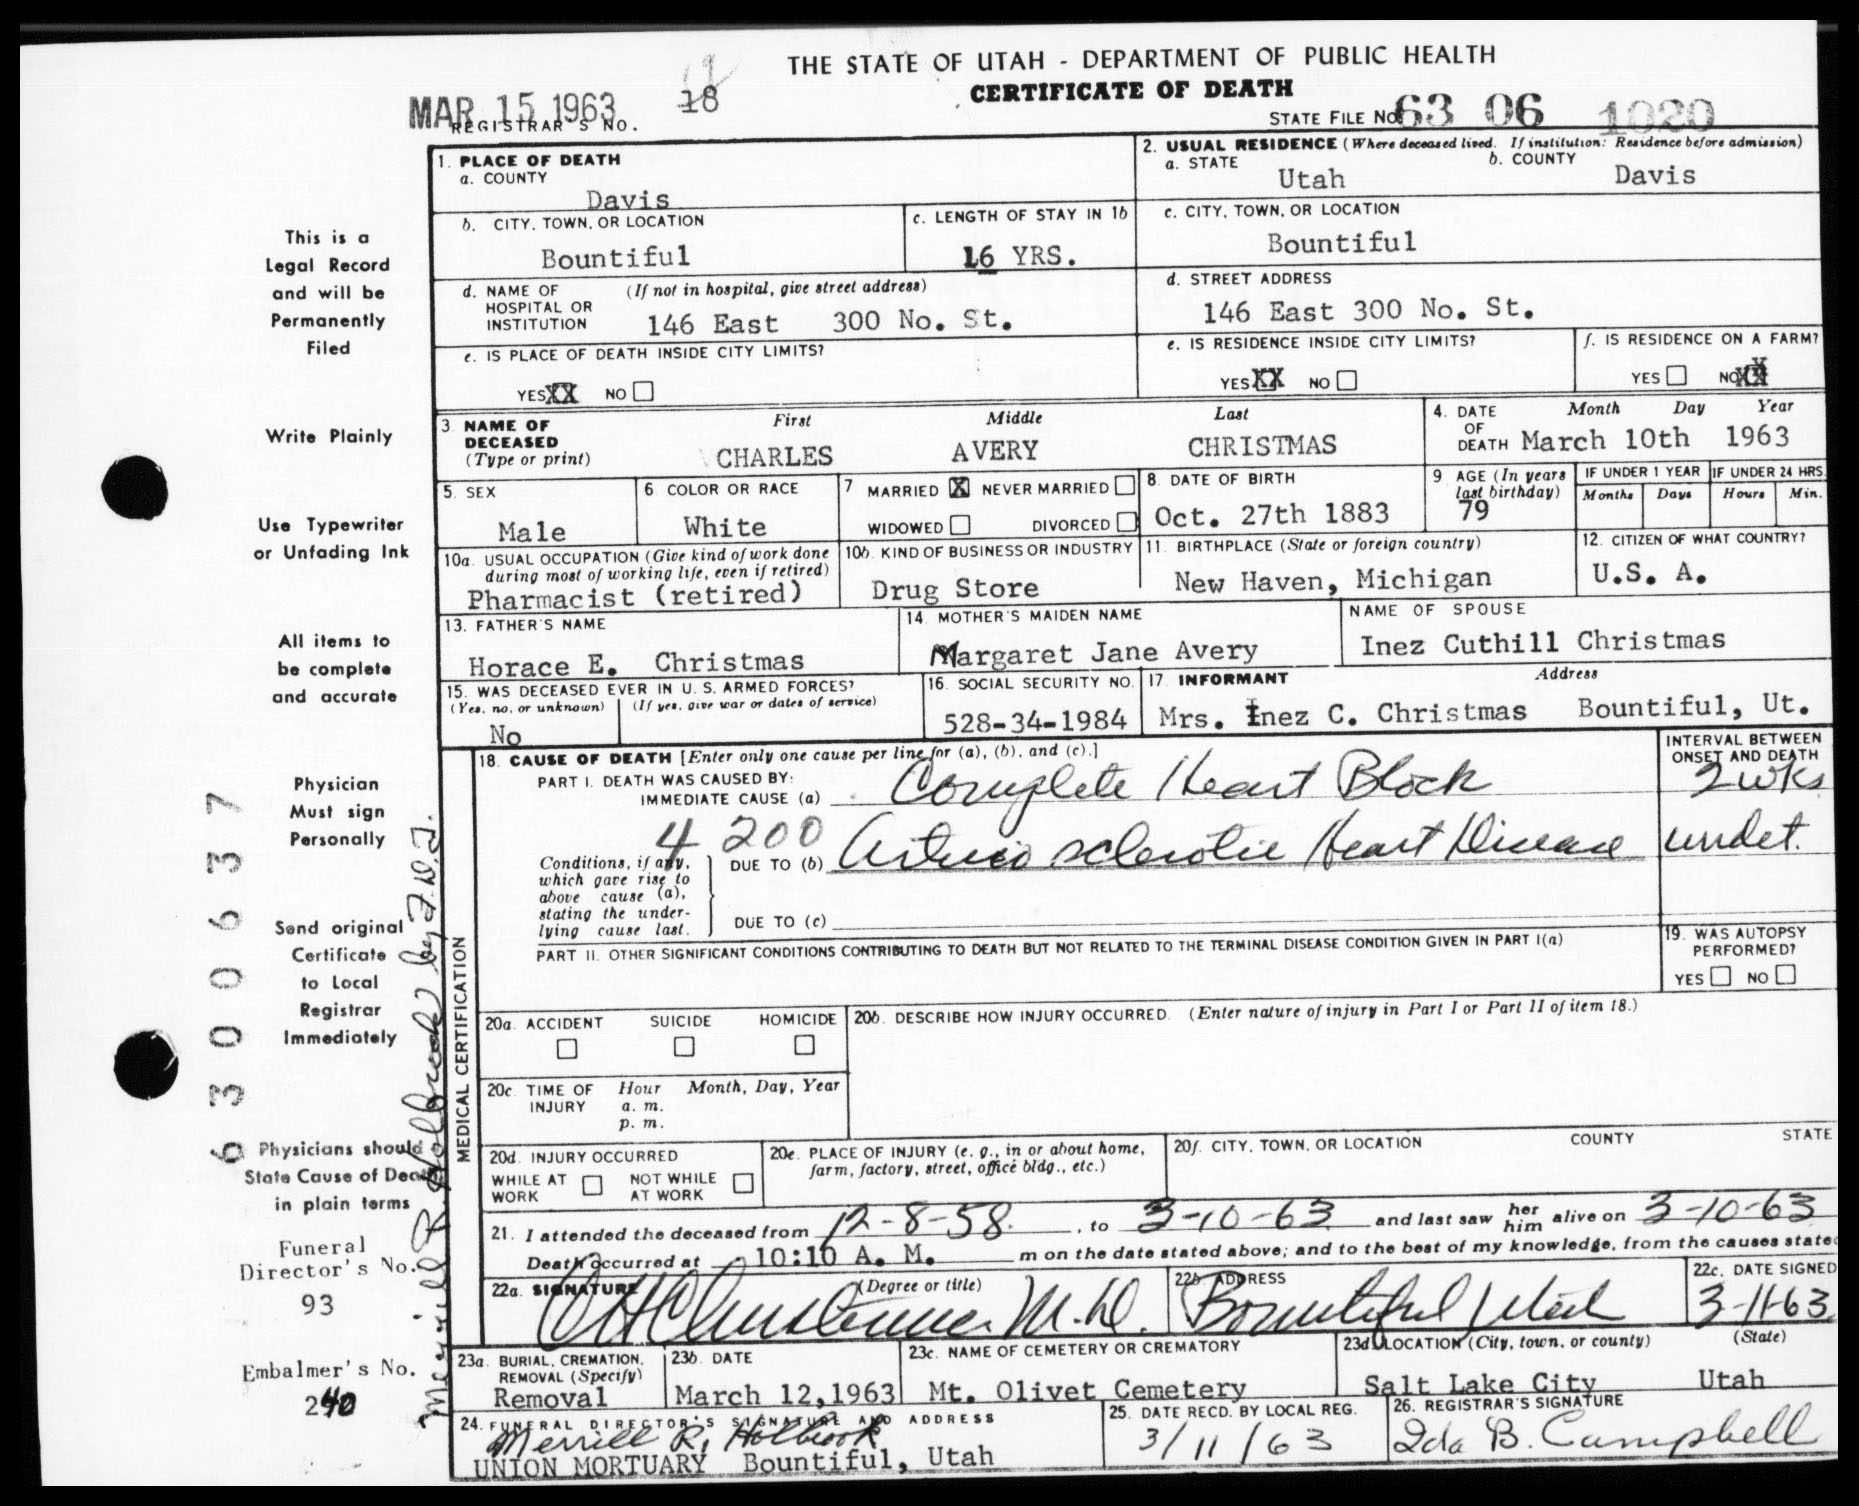 THE STATE OF UTAH - DEPARTMENT OF PUBLIC HEALTH
CERTIFICATE OF DEATH
MAR 15 1963
REGISTRAR'S NO. 18
STATE FILE NO. 63 06 1020
1. PLACE OF DEATH
a. COUNTY
Davis
2. USUAL RESIDENCE (Where deceased lived. If institution: Residence before admission)
a. STATE Utah b. COUNTY Davis
b. CITY, TOWN, OR LOCATION
Bountiful
c. LENGTH OF STAY IN 1b
16 YRS.
c. CITY, TOWN, OR LOCATION
Bountiful
d. NAME OF HOSPITAL OR INSTITUTION (If not in hospital, give street address)
146 East 300 No. St.
d. STREET ADDRESS
146 East 300 No. St.
e. IS PLACE OF DEATH INSIDE CITY LIMITS?
YES XX NO
e. IS RESIDENCE INSIDE CITY LIMITS?
YES XX NO
f. IS RESIDENCE ON A FARM?
YES NO XX
3. NAME OF DECEASED (Type or print)
First Middle Last
CHARLES AVERY CHRISTMAS
4. DATE OF DEATH Month Day Year
March 10th 1963
5. SEX
Male
6. COLOR OR RACE
White
7. MARRIED X NEVER MARRIED
WIDOWED DIVORCED
8. DATE OF BIRTH
Oct. 27th 1883
9. AGE (In years last birthday)
79
IF UNDER 1 YEAR
Months Days
IF UNDER 24 HRS.
Hours Min.
10a. USUAL OCCUPATION (Give kind of work done during most of working life, even if retired)
Pharmacist (retired)
10b. KIND OF BUSINESS OR INDUSTRY
Drug Store
11. BIRTHPLACE (State or foreign country)
New Haven, Michigan
12. CITIZEN OF WHAT COUNTRY?
U.S. A.
13. FATHER'S NAME
Horace E. Christmas
14. MOTHER'S MAIDEN NAME
Margaret Jane Avery
NAME OF SPOUSE
Inez Cuthill Christmas
15. WAS DECEASED EVER IN U. S. ARMED FORCES?
(Yes, no, or unknown) (If yes, give war or dates of service)
No
16. SOCIAL SECURITY NO.
528-34-1984
17. INFORMANT Address
Mrs. Inez C. Christmas Bountiful, Ut.
MEDICAL CERTIFICATION
18. CAUSE OF DEATH [Enter only one cause per line for (a), (b), and (c).]
INTERVAL BETWEEN ONSET AND DEATH
PART I. DEATH WAS CAUSED BY:
IMMEDIATE CAUSE (a) Complete Heart Block 2 wks
4 200
Conditions, if any, which gave rise to above cause (a), stating the underlying cause last.
DUE TO (b) Arterio sclerotic Heart Disease undet.
DUE TO (c)
PART II. OTHER SIGNIFICANT CONDITIONS CONTRIBUTING TO DEATH BUT NOT RELATED TO THE TERMINAL DISEASE CONDITION GIVEN IN PART I(a)
19. WAS AUTOPSY PERFORMED?
YES NO
20a. ACCIDENT SUICIDE HOMICIDE
20b. DESCRIBE HOW INJURY OCCURRED. (Enter nature of injury in Part I or Part II of item 18.)
20c. TIME OF INJURY Hour Month, Day, Year
a. m.
p. m.
20d. INJURY OCCURRED
WHILE AT WORK NOT WHILE AT WORK
20e. PLACE OF INJURY (e. g., in or about home, farm, factory, street, office bldg., etc.)
20f. CITY, TOWN, OR LOCATION COUNTY STATE
21. I attended the deceased from 12-8-58, to 3-10-63 and last saw her him alive on 3-10-63
Death occurred at 10:10 A. M. m on the date stated above; and to the best of my knowledge, from the causes stated
22a. SIGNATURE (Degree or title)
M.D.
22b. ADDRESS
Bountiful, Utah
22c. DATE SIGNED
3-11-63
23a. BURIAL, CREMATION, REMOVAL (Specify)
Removal
23b. DATE
March 12,1963
23c. NAME OF CEMETERY OR CREMATORY
Mt. Olivet Cemetery
23d. LOCATION (City, town, or county) (State)
Salt Lake City Utah
24. FUNERAL DIRECTOR'S SIGNATURE AND ADDRESS
Merrill R. Holbrook
UNION MORTUARY Bountiful, Utah
25. DATE RECD. BY LOCAL REG.
3/11/63
26. REGISTRAR'S SIGNATURE
Ida B. Campbell
This is a
Legal Record
and will be
Permanently
Filed
Write Plainly
Use Typewriter
or Unfading Ink
All items to
be complete
and accurate
Physician
Must sign
Personally
Send original
Certificate
to Local
Registrar
Immediately
Physicians should
State Cause of Death
in plain terms
Funeral
Director's No.
93
Embalmer's No.
240
6300637
Merrill R. Holbrook by F.W.J.